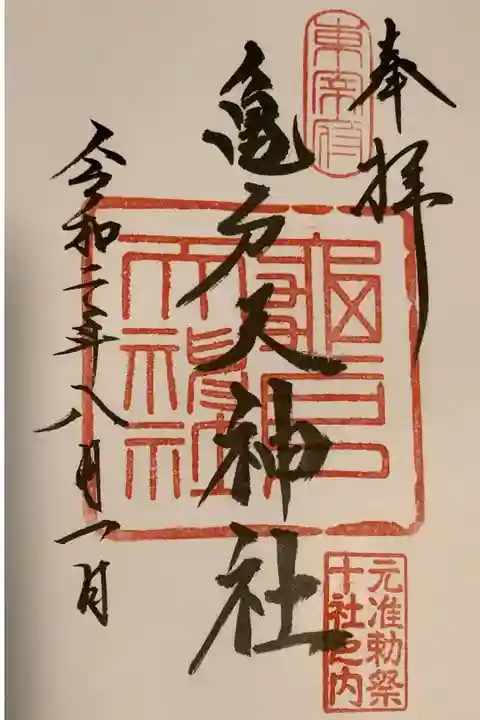 奉拝
東宰府
亀戸天神社
元准勅祭
十社之内
令和二年八月一日